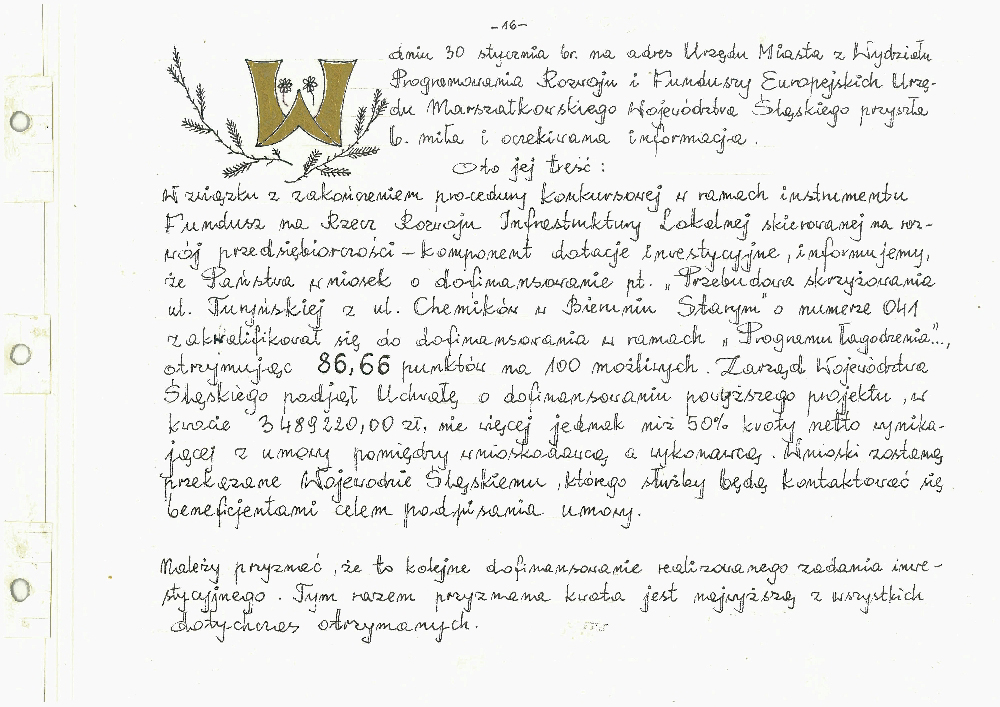 -16-
W dniu 30 stycznia br. na adres Urzędu Miasta z Wydziału
Programowania Rozwoju i Funduszy Europejskich Urzę-
du Marszałkowskiego Województwa Śląskiego przyszła
b. miła i oczekiwana informacja.
Oto jej treść:
W związku z zakończeniem procedury konkursowej w ramach instrumentu
Fundusz na Rzecz Rozwoju Infrastruktury Lokalnej skierowanej na roz-
wój przedsiębiorczości – komponent dotacje inwestycyjne, informujemy,
że Państwa wniosek o dofinansowanie pt. „Przebudowa skrzyżowania
ul. Turyńskiej z ul. Chemików w Bieruniu Starym" o numerze 041
zakwalifikował się do dofinansowania w ramach „Programu Łagodzenia"...,
otrzymując 86,66 punktów na 100 możliwych. Zarząd Województwa
Śląskiego podjął Uchwałę o dofinansowaniu powyższego projektu, w
kwocie 3489220,00 zł, nie więcej jednak niż 50% kwoty netto wynika-
jącej z umowy pomiędzy wnioskodawcą a wykonawcą. Wnioski zostaną
przekazane Wojewodzie Śląskiemu, którego służby będą kontaktować się
beneficjentami celem podpisania umowy.
Należy przyznać, że to kolejne dofinansowanie realizowanego zadania inwe-
stycyjnego. Tym razem przyznana kwota jest najwyższą z wszystkich
dotychczas otrzymanych.